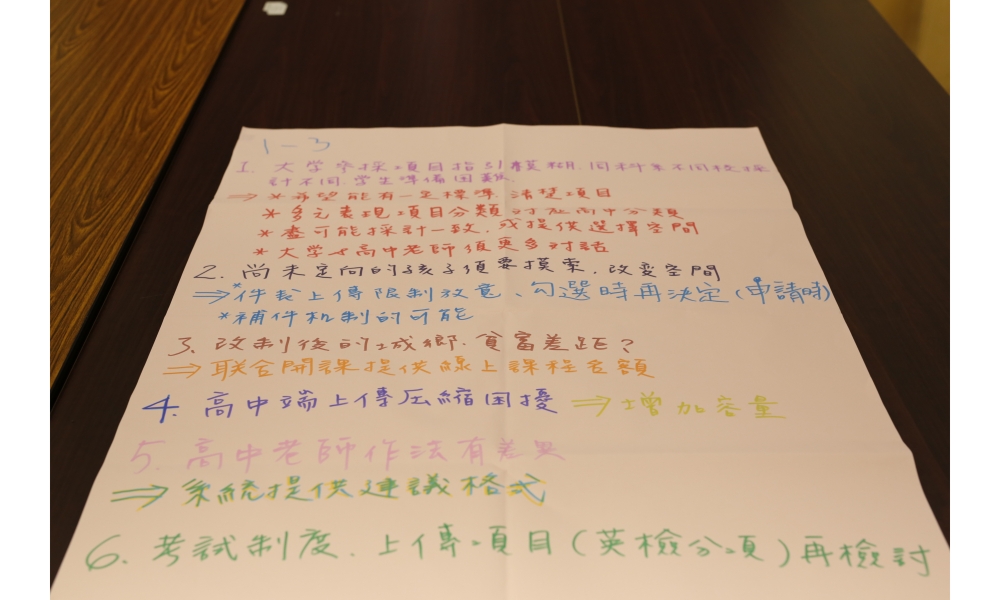 1-3
1. 大学参採項目指引模糊.同科系不同校採
計不同.学生準備困難.
⇒ *希望能有一定標準.清楚項目
*多元表現項目分類対應高中分類
*盡可能採計一致.或提供選擇空間
*大学与高中老師須更多対話
2. 尚未定向的孩子須要摸索.改変空間
⇒ *件數上傳限制放寬、勾選時再決定(申請時)
*補件机制的可能
3. 改制後的城鄉.貧富差距?
⇒ 联合開課提供線上課程名額
4. 高中端上傳压縮困擾 ⇒增加容量
5. 高中老師作法有差異
⇒ 系統提供建議格式
6. 考試制度.上傳項目(英檢分項)再檢討